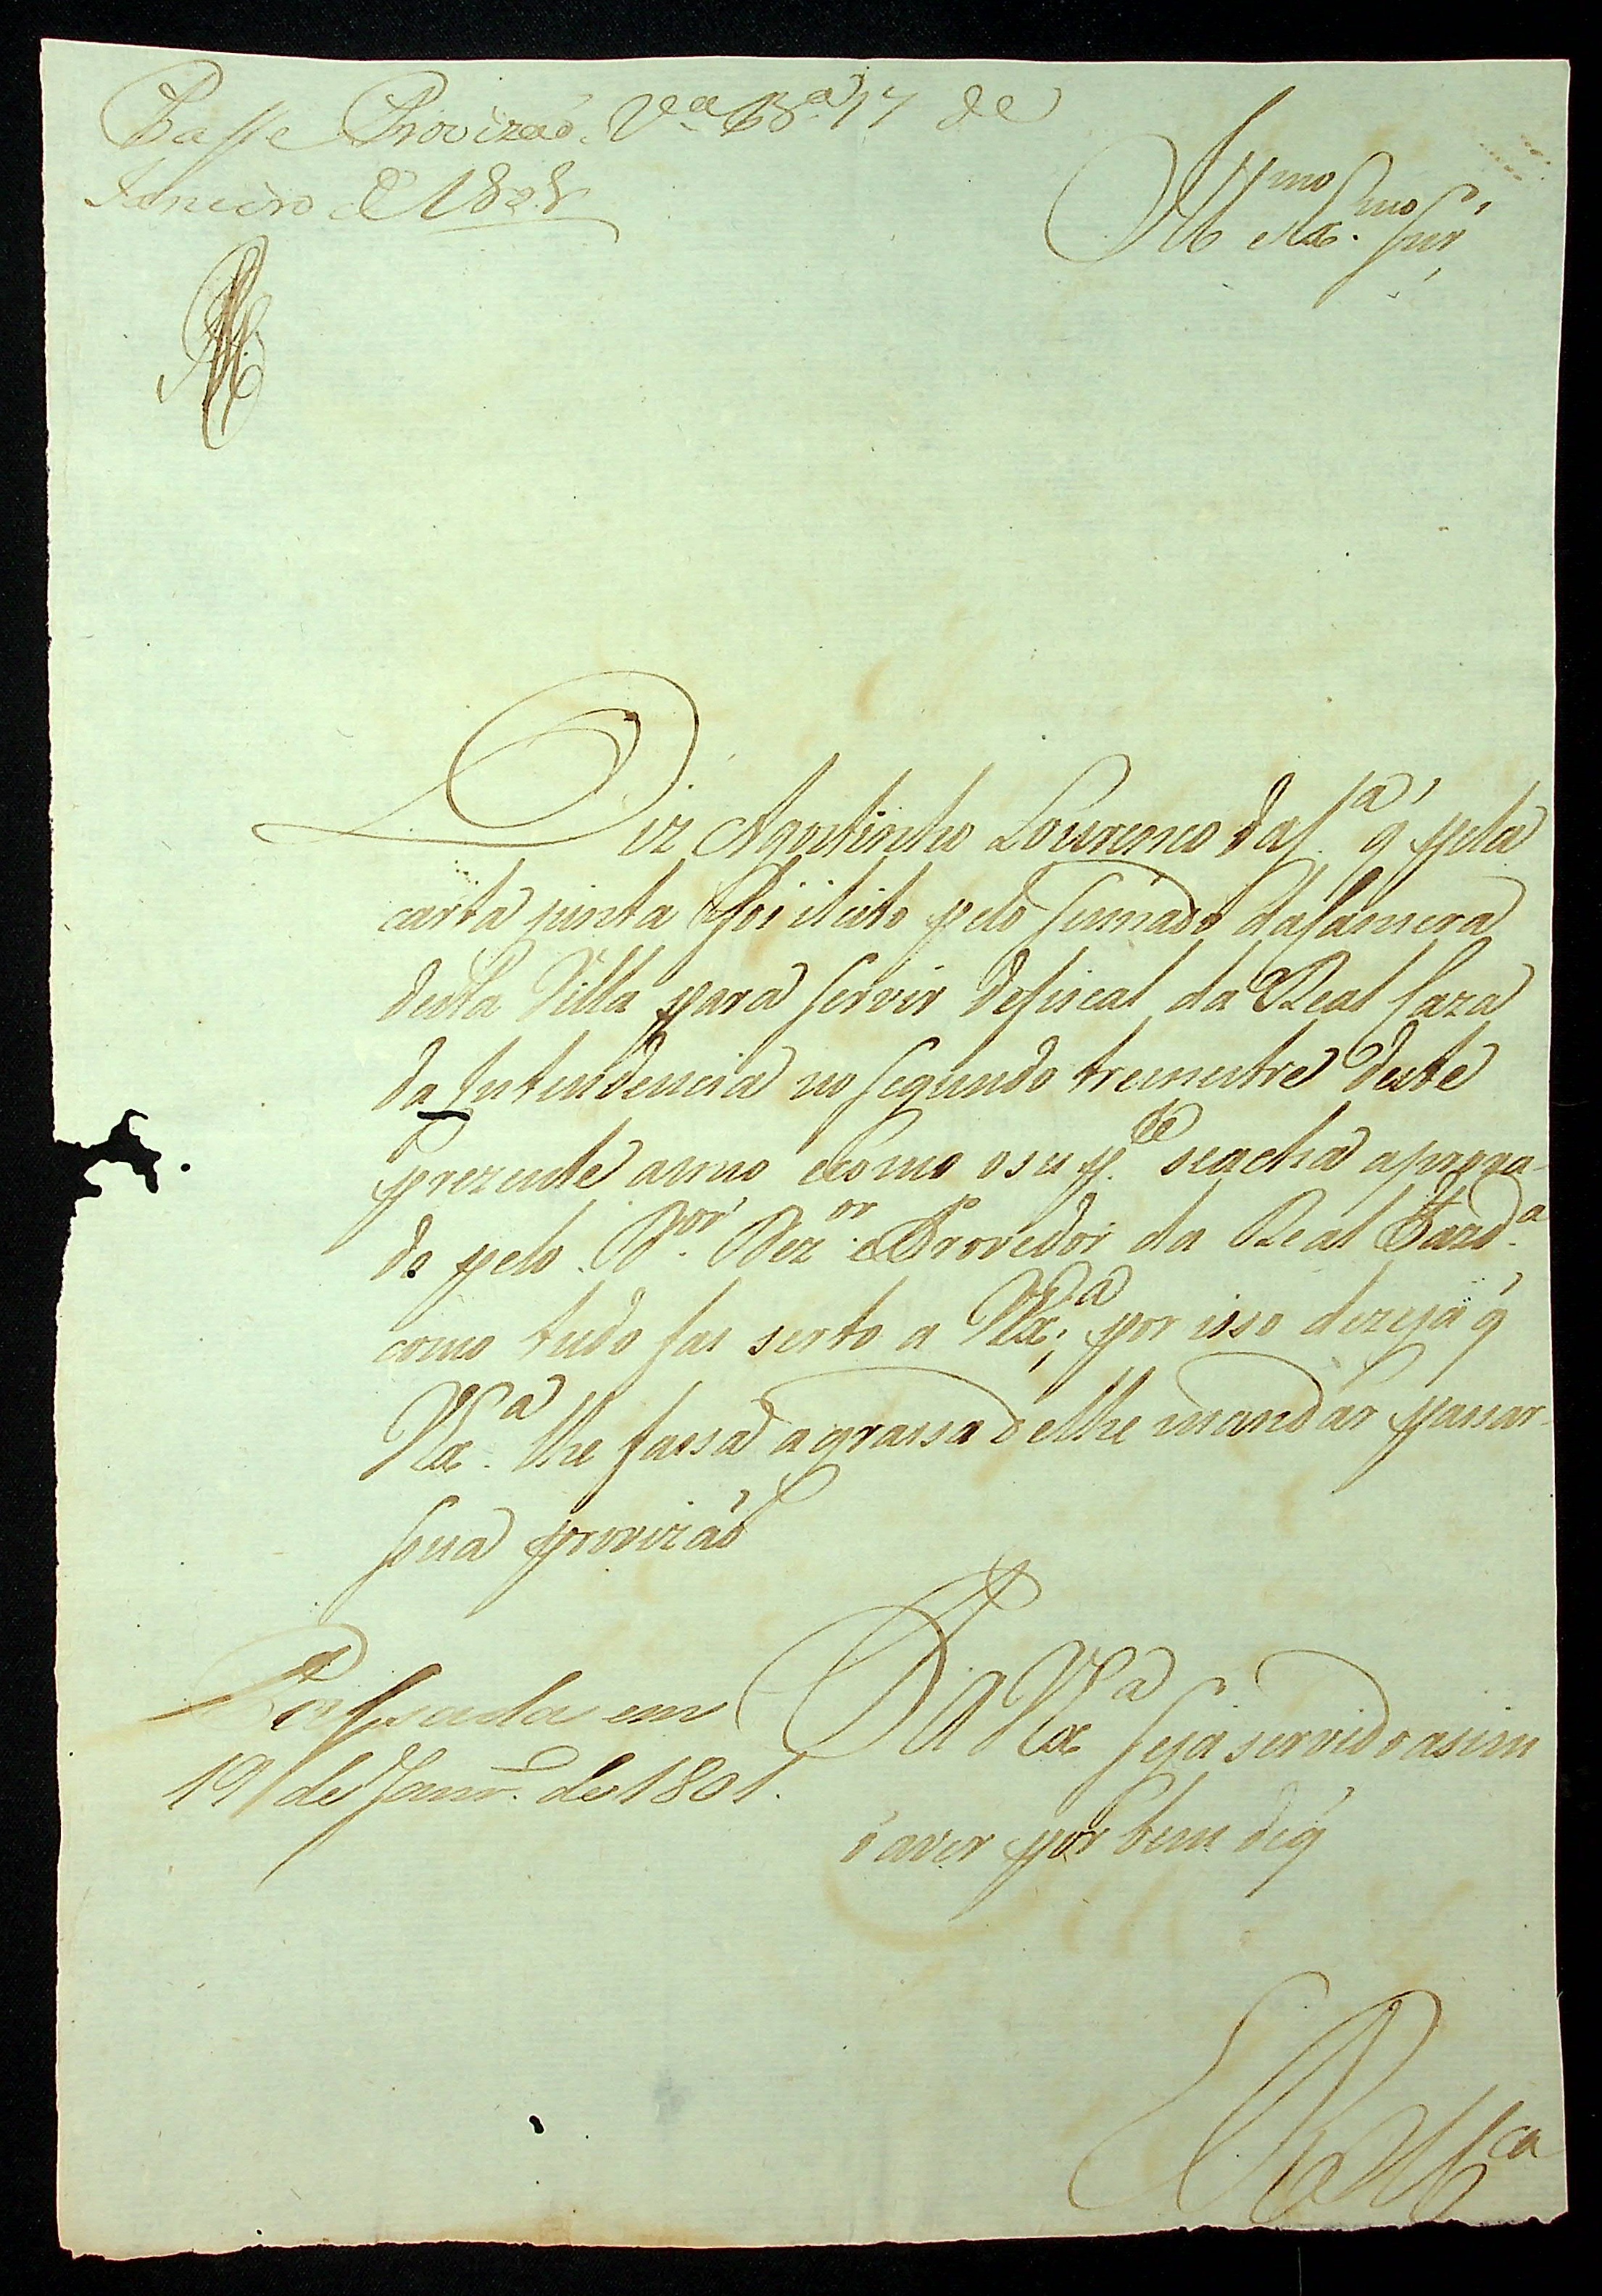 Passe Provizaõ. V.ª B.ª 17 de
Janeiro de 1801
Ill.mo e Ex.mo Snr'
Diz Agostinho Lourenco da S.ª q' pela
carta junta foi ileito pelo Sennado da Camera
desta Villa para servir de fiscal da Real Caza
da Intendencia no segundo tremestre deste
prezente anno e como o sup.te se acha aprova-
do pelo D.or Dez.or e Provedor da Real Fazd.ª
como tudo fas serto a V Ex.ª; por isso dezeja q'
V Ex.ª lhe fassa a grassa de lhe mandar passar
sua provizaõ
P A V Ex.ª seja servido asim
o aver por bem de q'
Passada em
19 de Janr.º de 1801.
E R M.ca